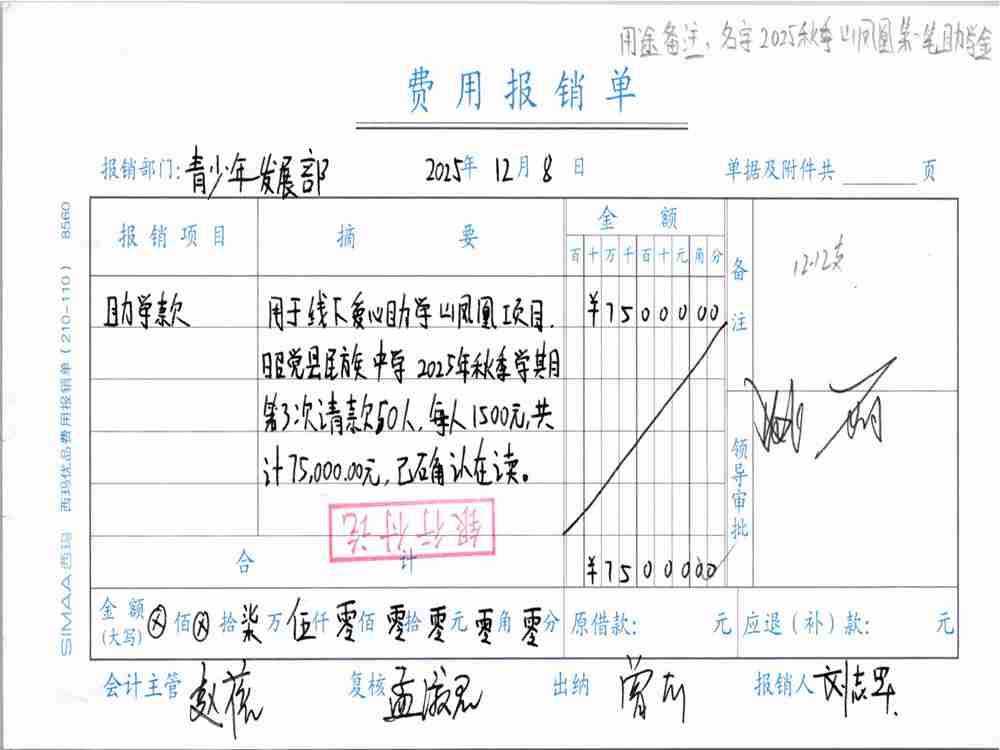 用途备注:名字2025秋季山凤凰第一笔助学金
费用报销单
报销部门:青少年发展部 2025年12月8日 单据及附件共 页
报销项目 摘要 金额 备注
百十万千百十元角分
12.12支
助学款 用于线下爱心助学山凤凰项目. ¥7500000
昭觉县民族中学2025年秋季学期
第3次请款50人,每人1500元,共
计75,000.00元,已确认在读。
领导审批
银行付讫
合计 ¥7500000
金额(大写) ⊗佰⊗拾柒万伍仟零佰零拾零元零角零分 原借款: 元 应退(补)款: 元
会计主管 复核 出纳 报销人
SIMAA西玛 西玛优品费用报销单(210-110) 8560